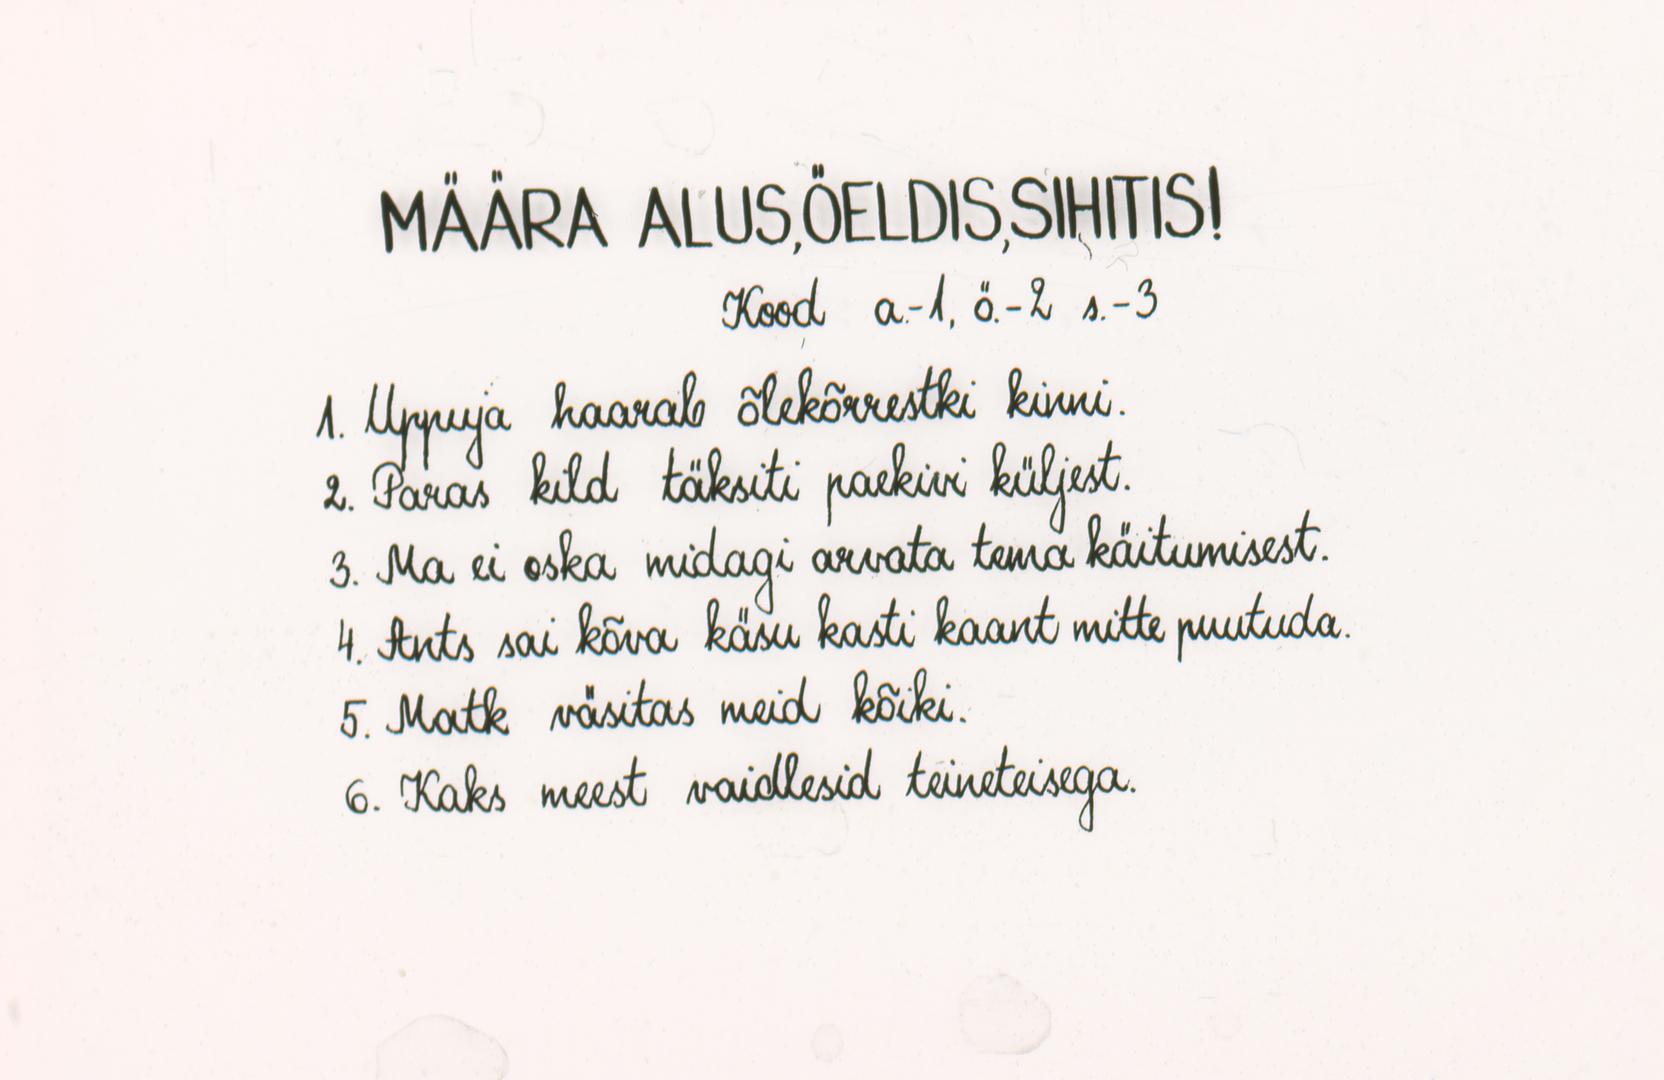 MÄÄRA ALUS, ÖELDIS, SIHITIS!
Kood a.-1, ö.-2 s.-3
1. Uppuja haarab õlekõrrestki kinni.
2. Paras kild täksiti paekivi küljest.
3. Ma ei oska midagi arvata tema käitumisest.
4. Ants sai kõva käsu kasti kaant mitte puutuda.
5. Matk väsitas meid kõiki.
6. Kaks meest vaidlesid teineteisega.